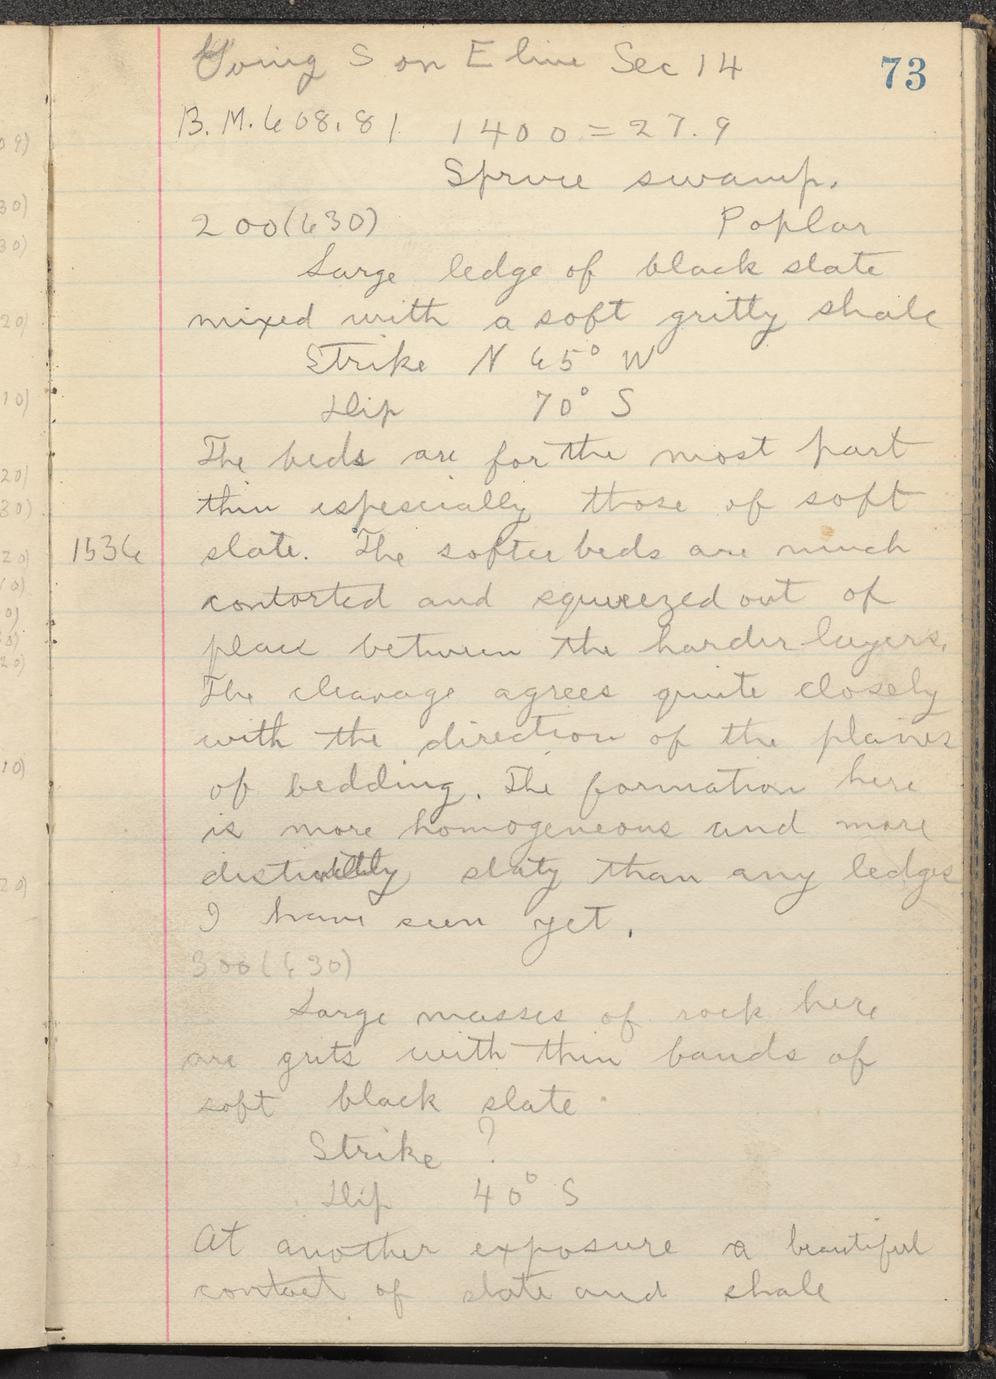 Going S on E line Sec 14
73
B.M. 608.81 1400 = 27.9
Spruce swamp.
200 (630) Poplar
Large ledge of black slate
mixed with a soft gritty shale
Strike N 65° W
Dip 70° S
The beds are for the most part
thin especially those of soft
1536 slate. The softer beds are much
contorted and squeezed out of
place between the harder layers.
The cleavage agrees quite closely
with the direction of the planes
of bedding. The formation here
is more homogeneous and more
slaty than any ledges
I have seen yet.
300 (630)
Large masses of rock here
are grits with thin bands of
soft black slate
Strike ?
Dip 40° S
At another exposure a beautiful
contact of slate and shale
09)
30)
30)
20)
10)
20)
30)
20)
10)
0)
30)
20)
10)
20)